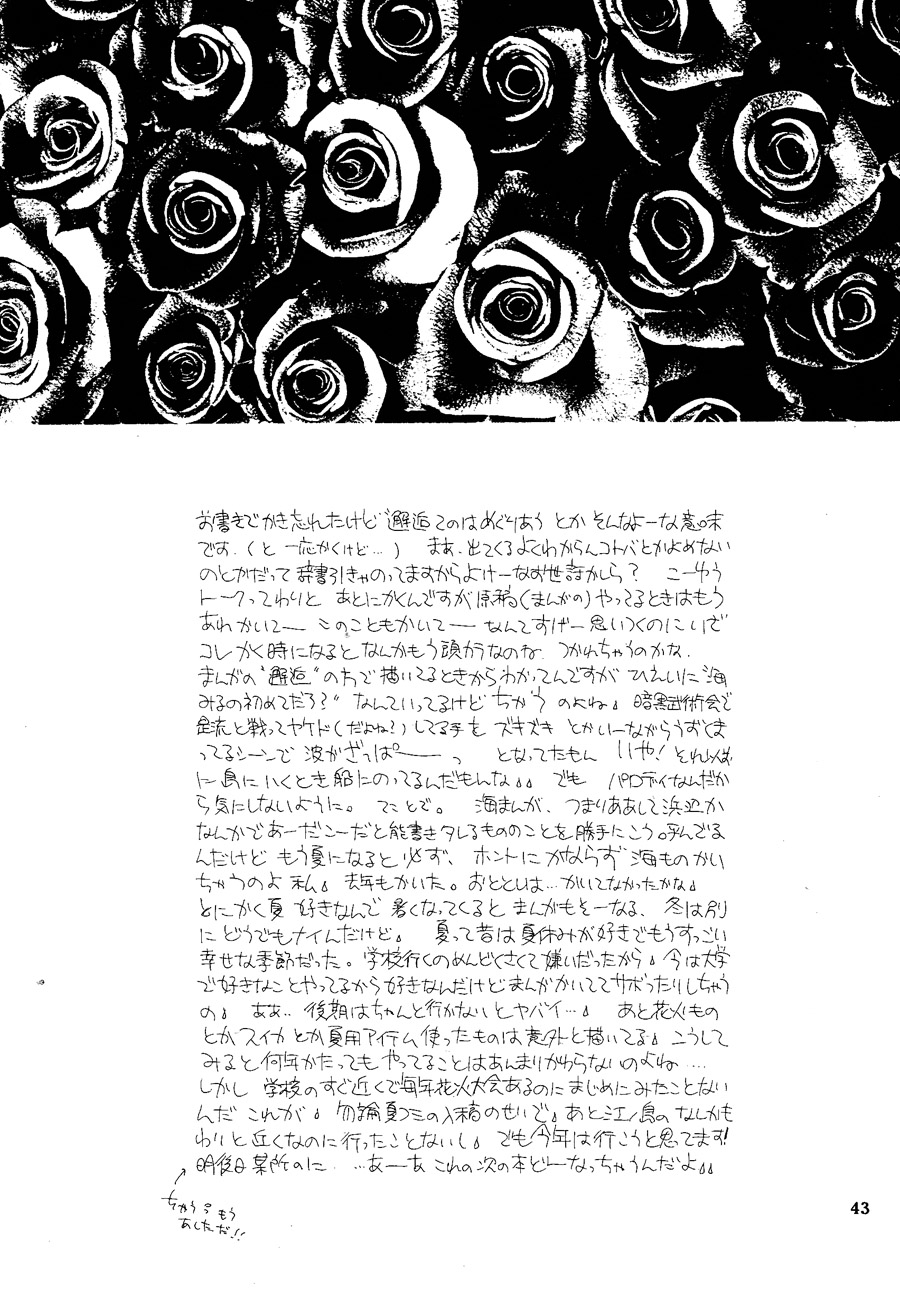 お書きでかき忘れたけど"邂逅"てのはめぐりあう とか そんなよーな意味
です.(と 一応かくけど…) まあ.出てくるよくわからんコトバとかよめない
のとかだって辞書引きゃのってますからよけーなお世話かしら? こーゆう
トークってわりと あとにかくんですが原稿(まんがの)やってるときはもう
あれかいてー このこともかいてー なんてすげー思いつくのにいざ
コレかく時になるとなんかもう頭カラなのね. つかれちゃうのかな.
まんがの"邂逅"の方で描いてるときからわかってんですが ひえいに"海
みるの初めてだろ?"なんていってるけど ちがう のよね♩ 暗黒武術会で
是流と戦ってヤケド(だよね?)してる手を ズキズキ とかいーながらうずくま
ってるシーンで 波がざっぱーーっ となってたもん いや! それ以前
に島にいくとき船にのってるんだもんな♩♩ でも パロディなんだか
ら気にしないように。 てことで。 海まんが、つまりああして浜辺か
なんかであーだこーだと能書きタレるもののことを勝手にこう呼んでる
んだけど もう夏になると必ず、 ホントに かならず 海ものかい
ちゃうのよ 私♩ 去年もかいた。おととしは…かいてなかったかな♩
とにかく夏 好きなんで 暑くなってくると まんがもそーなる、 冬は別
に どうでもナイんだけど♩ 夏って昔は夏休みが好きでもうすっごい
幸せな季節だった。学校行くのめんどくさくて嫌いだったから♩ 今は大学
で好きなことやってるから好きなんだけどまんがかいててサボったりしちゃう
の♩ ああ.. 後期はちゃんと行かないとヤバイ…♩ あと花火もの
とか スイカ とか夏用アイテム使ったものは意外と描いてる♩ こうして
みると何年かたってもやってることはあんまりかわらないのよね ….
しかし 学校のすぐ近くで毎年花火大会あるのにまじめにみたことない
んだ これが♩ 勿論夏コミの入稿のせいで♩あと江ノ島のなんかも
わりと近くなのに行ったことないし♩ でも今年は行こうと思ってます!
明後日某所のに. …あーあ これの次の本どーなっちゃうんだよ♩♩
ちがう。もう
あしただ!!
43